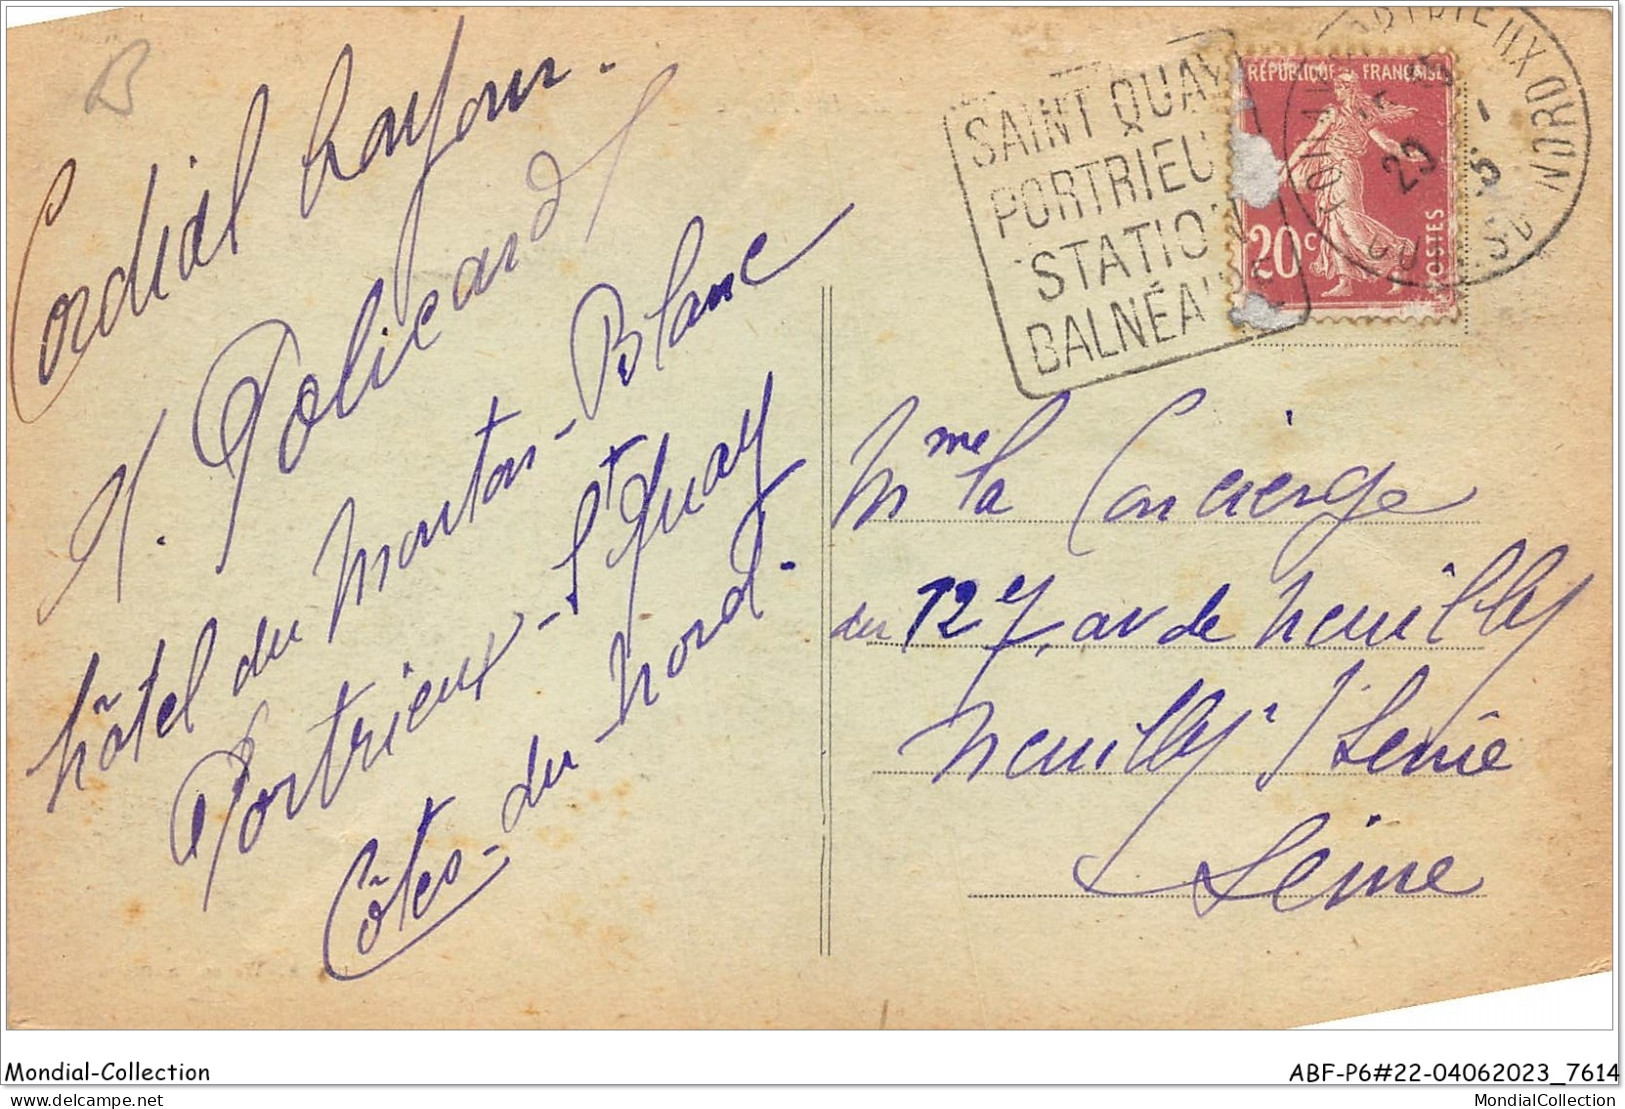 B
Cordial bonjour.
M. Policard
hôtel du mouton-Blanc
Portrieux-St Quay
Côtes-du-nord.
SAINT QUAY
PORTRIEU
STATION
BALNÉAIRE
RÉPUBLIQUE FRANÇAISE
20c
POSTES
29
5
DU NORD
Mme la Concierge
du 127, av de neuilly
neuilly s/Seine
Seine
Mondial-Collection
ABF-P6#22-04062023_7614
delcampe.net
MondialCollection